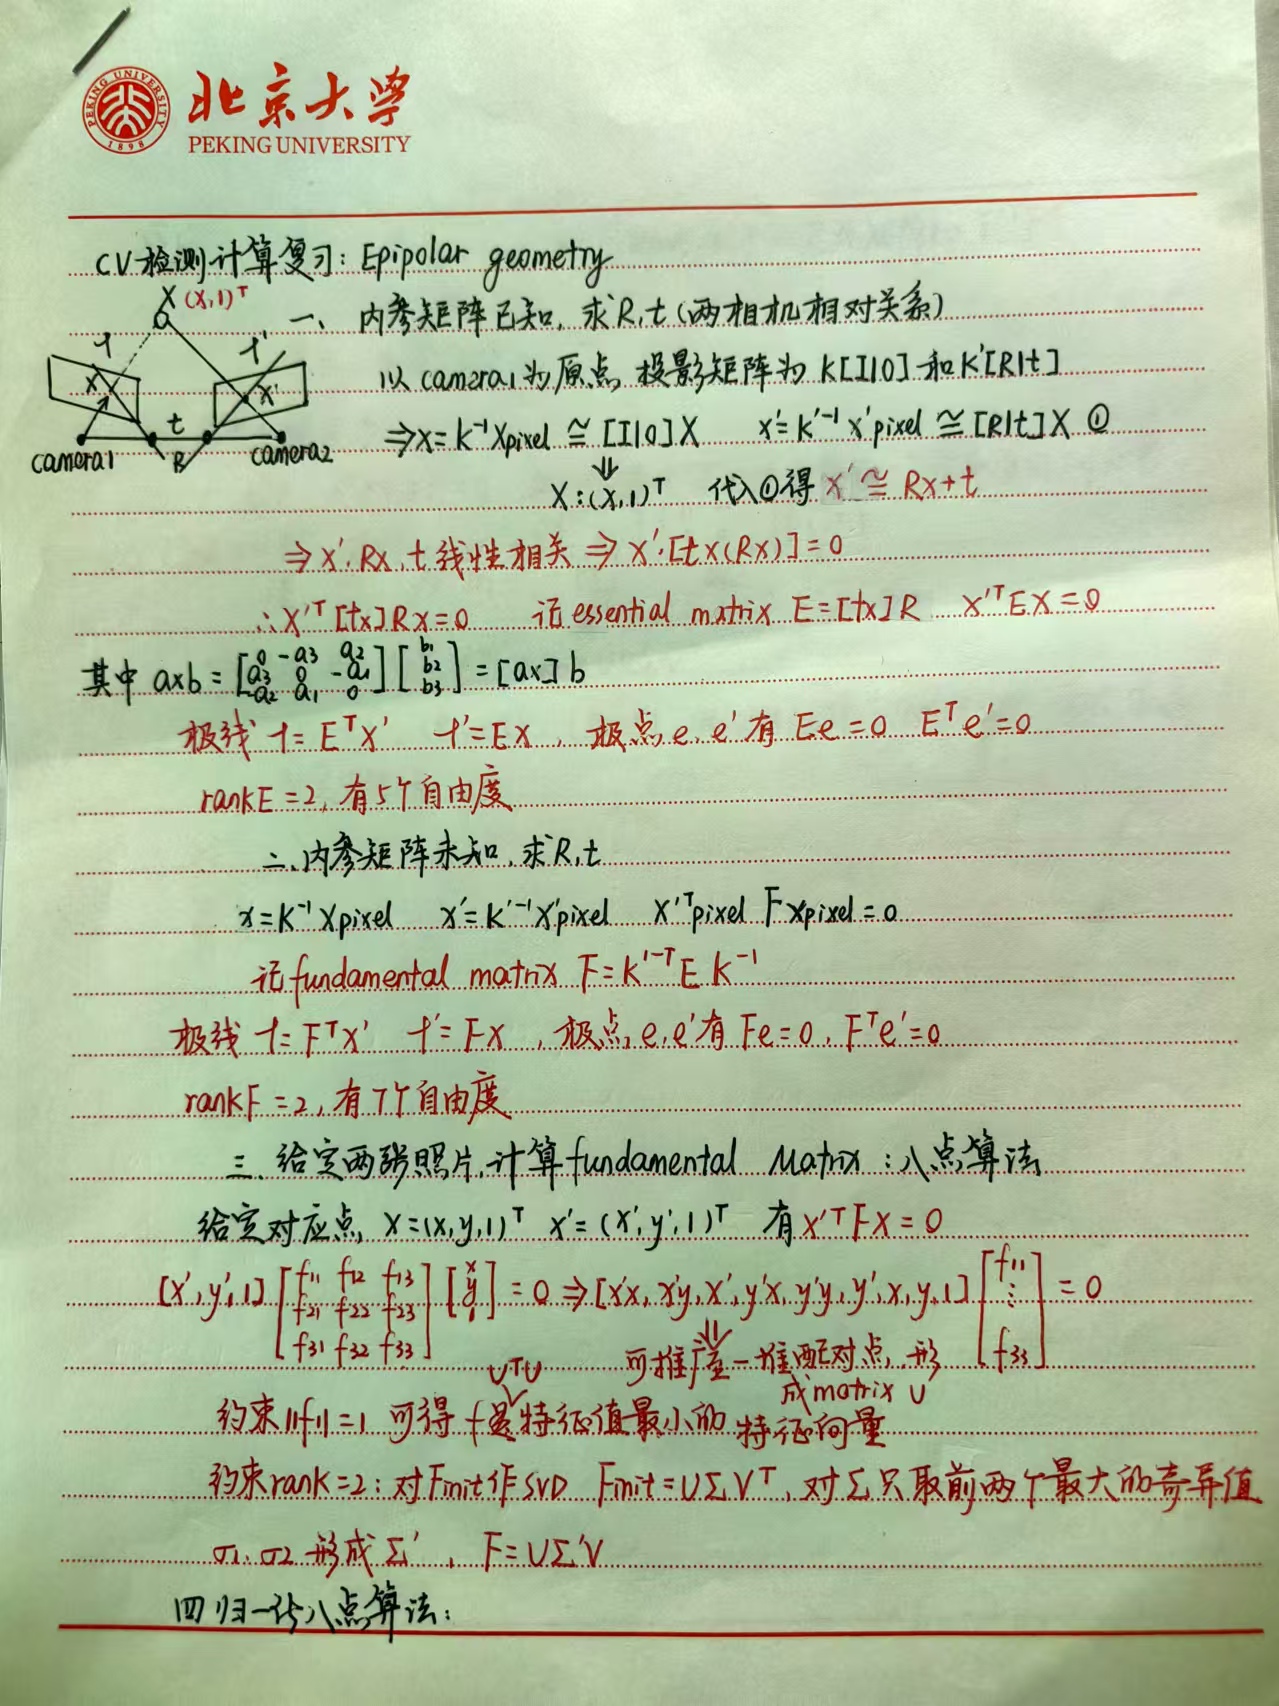 北京大学
PEKING UNIVERSITY
PEKING UNIVERSITY
1898
CV检测计算复习: Epipolar geometry
X (X,1)ᵀ
一、内参矩阵已知, 求R,t (两相机相对关系)
l l'
X X'
t
R
camera1 camera2
以camera1为原点, 投影矩阵为 K[I|0] 和 K'[R|t]
⇒ x = K⁻¹ Xpixel ≅ [I|0] X x' = K'⁻¹ x'pixel ≅ [R|t] X ①
⇓
X: (x,1)ᵀ 代入①得 x' ≅ Rx+t
⇒ x', Rx, t 线性相关 ⇒ x'·[t×(Rx)] = 0
∴ x'ᵀ[t×]Rx = 0 记 essential matrix E = [t×]R x'ᵀEx = 0
其中 a×b = [0 -a3 a2
a3 0 -a1
-a2 a1 0] [b1
b2
b3] = [a×] b
极线 l = Eᵀx' l' = Ex , 极点 e, e' 有 Ee = 0 Eᵀe' = 0
rankE = 2, 有5个自由度
二、内参矩阵未知, 求R,t
x = K⁻¹ Xpixel x' = K'⁻¹ x'pixel x'ᵀpixel F xpixel = 0
记 fundamental matrix F = K'⁻ᵀ E K⁻¹
极线 l = Fᵀx' l' = Fx , 极点 e, e' 有 Fe = 0, Fᵀe' = 0
rankF = 2, 有7个自由度
三、给定两张照片, 计算 fundamental Matrix : 八点算法
给定对应点, X = (x,y,1)ᵀ x' = (x',y',1)ᵀ 有 x'ᵀFx = 0
[x', y', 1] [f11 f12 f13
f21 f22 f23
f31 f32 f33] [x
y
1] = 0 ⇒ [x'x, x'y, x', y'x, y'y, y', x, y, 1] [f11
⋮
f33] = 0
⇓
可推广至一堆匹配对点, 形
成matrix U
UᵀU
约束||f||=1 可得 f 是特征值最小的特征向量
约束rank=2: 对Finit作SVD Finit = UΣVᵀ, 对Σ只取前两个最大的奇异值
σ1, σ2 形成 Σ' , F = UΣ'V
四 归一化八点算法: